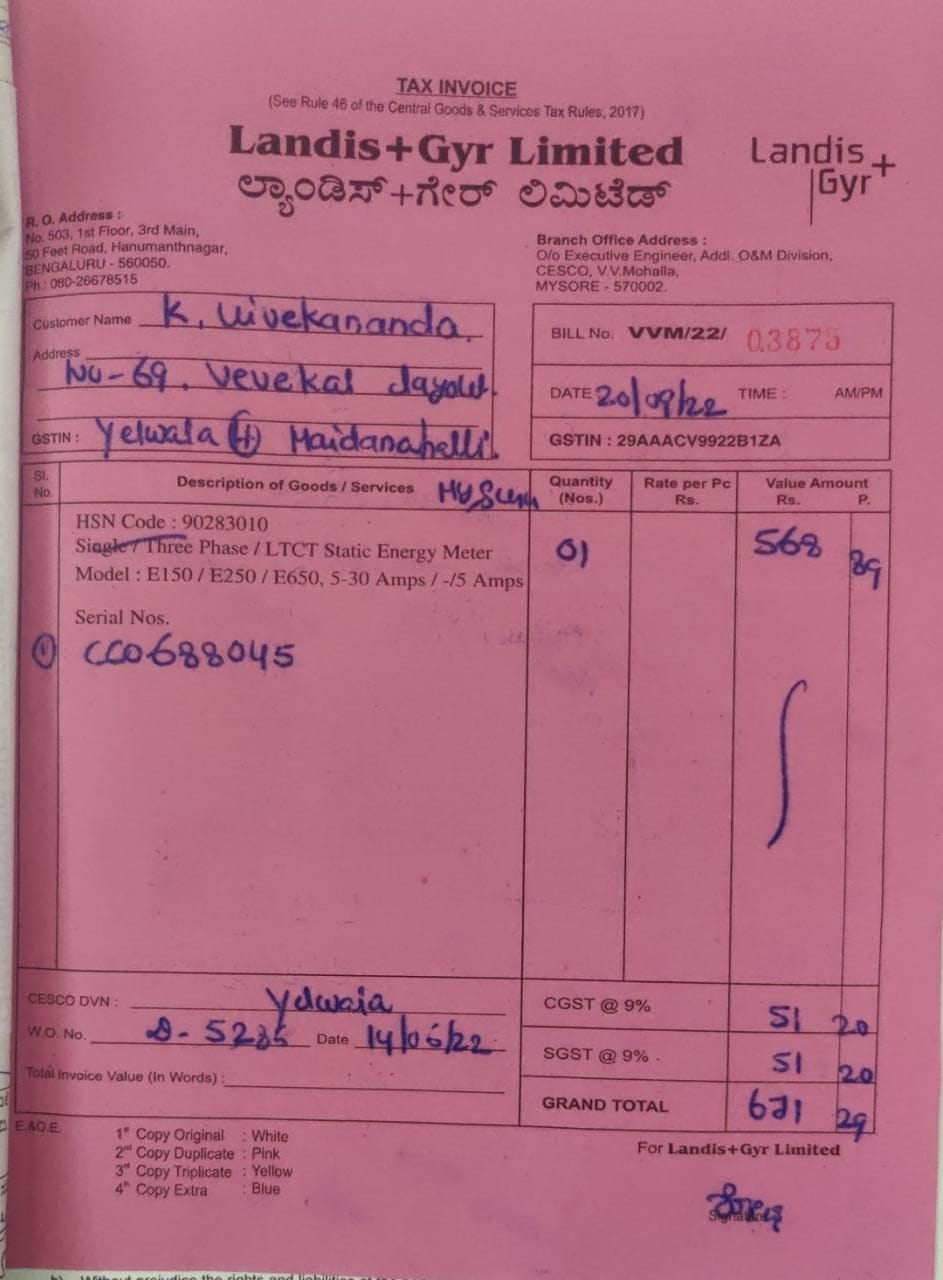 TAX INVOICE
(See Rule 46 of the Central Goods & Services Tax Rules, 2017)
Landis+Gyr Limited
ಲ್ಯಾಂಡಿಸ್+ಗೇರ್ ಲಿಮಿಟೆಡ್
Landis+
Gyr
R. O. Address :
No. 503, 1st Floor, 3rd Main,
50 Feet Road, Hanumanthnagar,
BENGALURU - 560050.
Ph.: 080-26678515
Branch Office Address :
O/o Executive Engineer, Addl. O&M Division,
CESCO, V.V.Mohalla,
MYSORE - 570002.
Customer Name K. Vivekananda.
Address
No-69.
GSTIN : Yelwala (H)
BILL No. VVM/22/ 03875
DATE 20/09/22 TIME : AM/PM
GSTIN : 29AAACV9922B1ZA
Sl. No. Description of Goods / Services Quantity (Nos.) Rate per Pc Rs. Value Amount Rs. P.
HSN Code : 90283010
Single / Three Phase / LTCT Static Energy Meter 01 568 89
Model : E150 / E250 / E650, 5-30 Amps / -/5 Amps
Serial Nos.
① CC0688045
CESCO DVN :
W.O. No. Date 14/06/22
Total Invoice Value (In Words) :
CGST @ 9% 51 20
SGST @ 9% 51 20
GRAND TOTAL 671 29
E.&O.E.
1st Copy Original : White
2nd Copy Duplicate : Pink
3rd Copy Triplicate : Yellow
4th Copy Extra : Blue
For Landis+Gyr Limited